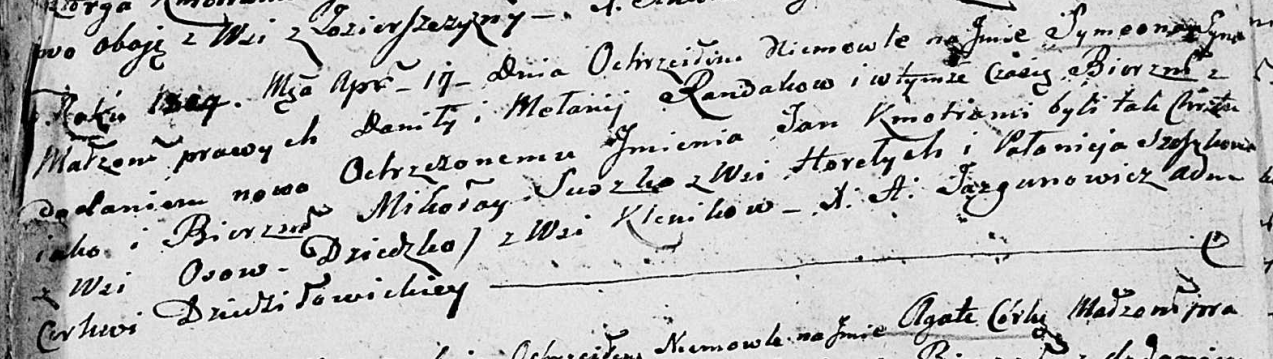 wo oboję z Wsi z Jozierszczyzny –
Roku 1804. Mca Apr – 17 – Dnia Ochrzciłem Niemowle na Jmie Symeona Syna
Małżoń prawych Daniły i Mełanij Randakow i w tymże Czasie Bierzm z
dodaniem nowo Ochrzczonemu Jmienia Jan Kmotrami byli tak Chrztu
iako i Bierzm Mikołay Suszko z Wsi Horełych i Pałanieja
z Wsi Osow – Dziedzko / z Wsi Klenikow – X. A. Jazgunowicz Adm
Cerkwi Dziedziławickiey
Ochrzciłem Niemowle na Jmie Agatę Córkę Małżoń pra